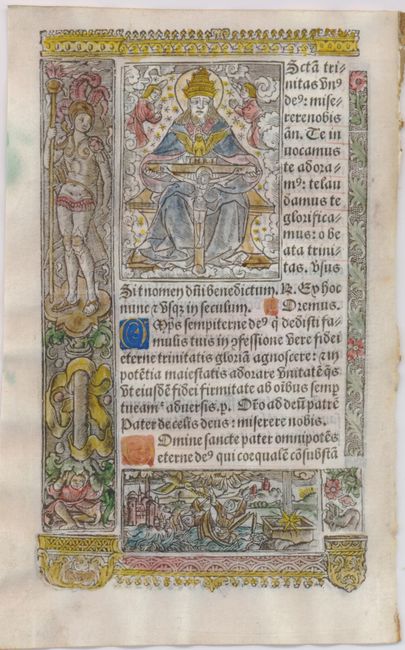 Sctā tri-
nitas vnꝰ
deꝰ: mise-
rere nobis
añ. Te in
uocamus
te adora-
mꝰ: te lau
damus te
glorifica-
mus: o be
ata trini-
tas. Vsus
Sit nomen dñi benedictum. R. Ex hoc
nunc ⁊ vsqꝫ in seculum. Oremus.
OMps sempiterne deꝰ q̇ dedisti fa-
mulis tuis in ꝯfessione vere fidei
eterne trinitatis gloriā agnoscere: ⁊ in
potētia maiestatis adorare vnitatē q̄s
vt eiusdē fidei firmitate ab oībus semp
tueamᷣ aduersis. p. Oro ad deū patrē
Pater de celis deus: miserere nobis.
Domine sancte pater omnipotēs
eterne deꝰ qui coequalē cōsubstā